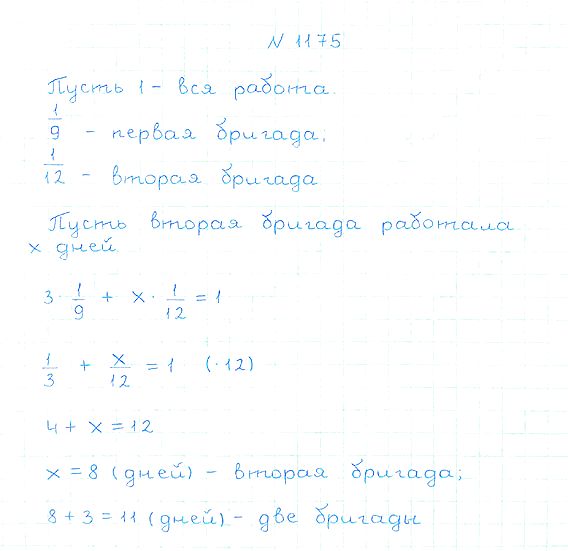 N 1175
Пусть 1 - вся работа.
1/9 - первая бригада;
1/12 - вторая бригада
Пусть вторая бригада работала
x дней.
3 · 1/9 + x · 1/12 = 1
1/3 + x/12 = 1 (·12)
4 + x = 12
x = 8 (дней) - вторая бригада;
8 + 3 = 11 (дней) - две бригады